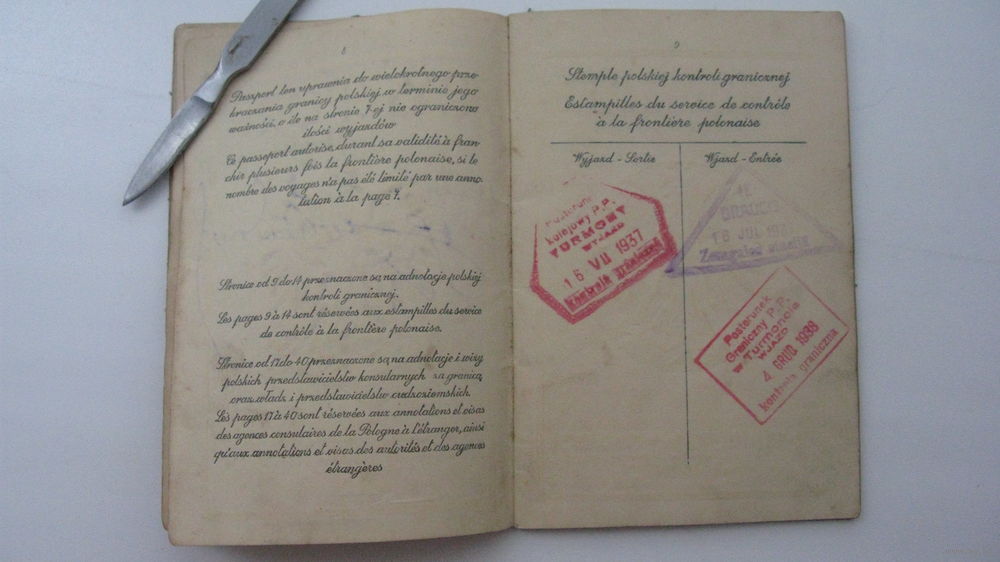 8
Paszport ten uprawnia do wielokrotnego prze-
kraczania granicy polskiej w terminie jego
ważności, o ile na stronie 7-ej nie ograniczono
ilości wyjazdów
Ce passeport autorise, durant sa validité à fran-
chir plusieurs fois la frontière polonaise, si le
nombre des voyages n'a pas été limité par une anno-
tation à la page 7.
Stronice od 9 do 14 przeznaczone są na adnotacje polskiej
kontroli granicznej.
Les pages 9 à 14 sont réservées aux estampilles du service
de contrôle à la frontière polonaise.
Stronice od 17 do 40 przeznaczone są na adnotacje i wizy
polskich przedstawicielstw konsularnych za granicą,
oraz władz i przedstawicielstw cudzoziemskich.
Les pages 17 à 40 sont réservées aux annotations et visas
des agences consulaires de la Pologne à l'étranger, ainsi
qu'aux annotations et visas des autorités et des agences
étrangères
9
Stemple polskiej kontroli granicznej
Estampilles du service de contrôle
à la frontière polonaise
Wyjazd - Sortie
Wjazd - Entrée
Posterunek
kolejowy P.P.
TURMONT
WYJAZD
16 VII 1937
kontrola graniczna
16 JUL
Zemgale
Posterunek
Graniczny P.P.
w Turmoncie
WJAZD
4. GRUD. 1938
kontrola graniczna